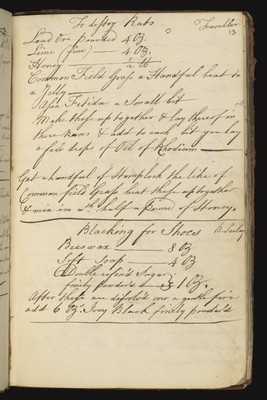 To destroy Rats
Traveller
13
Lead Ore pounded 4 Oz.
Lime (fine) 4 Oz.
Honey ½ lb
Common Field Grass a Handful beat to
a Jelly
Assa Fetida a Small bit
Make these up together & lay thereof in
there Runs & add to each bit you lay
a few drops of Oil of Rhodium
Get a handful of Hemplock the like of
Common Field Grass beat these up together
& mix in wth half a Pound of Honey.
Blacking for Shoes
Bees wax 8 Oz
Soft Soap 4 Oz
Double refin'd Sugar
finely powder'd 1 Oz.
After these are disolv'd over a gentle fire
add 6 Oz. Ivory Black finely powder'd